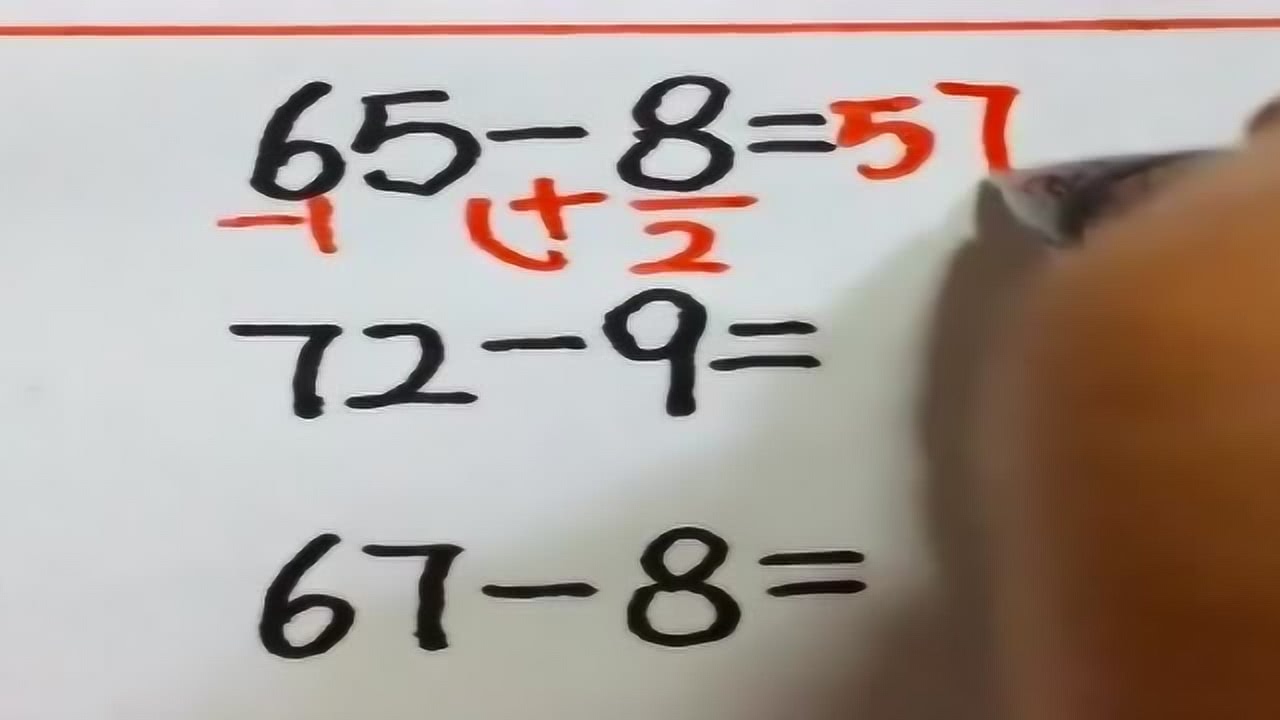 65-8=57
-1 + 2
72-9=
67-8=